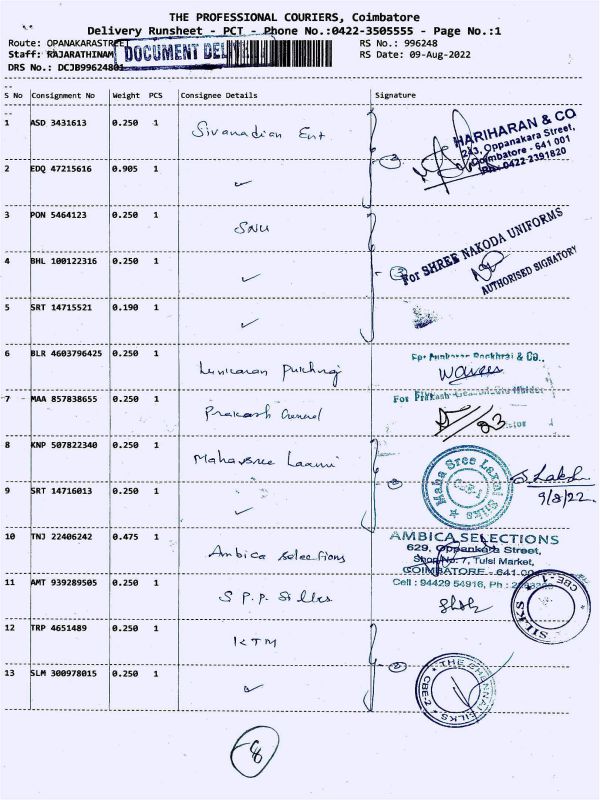 THE PROFESSIONAL COURIERS, Coimbatore
Delivery Runsheet - PCT - Phone No.:0422-3505555 - Page No.:1
Route: OPANAKARASTREET RS No.: 996248
Staff: RAJARATHINAM RS Date: 09-Aug-2022
DOCUMENT
DRS No.: DCJB99624801
S No Consignment No Weight PCS Consignee Details Signature
1 ASD 3431613 0.250 1 Sivanadian Ent
HARIHARAN & CO
243, Oppanakara Street,
Coimbatore - 641 001
Ph: 0422 2391820
2 EDQ 47215616 0.905 1 ✓
3 PON 5464123 0.250 1 SNU
For SHREE NAKODA UNIFORMS
AUTHORISED SIGNATORY
4 BHL 100122316 0.250 1 ✓
5 SRT 14715521 0.190 1 ✓
6 BLR 4603796425 0.250 1
7 MAA 857838655 0.250 1 Prakash General
8 KNP 507822340 0.250 1 Mahasree Laxmi
Maha Sree Laxmi Silks
CBE-1
9/8/22.
9 SRT 14716013 0.250 1 ✓
10 TNJ 22406242 0.475 1 Ambica Selections
AMBICA SELECTIONS
629, Oppankara Street,
Shop No: 7, Tulsi Market,
COIMBATORE - 641 001
Cell : 94429 54916, Ph :
11 AMT 939289505 0.250 1 S P.P Silks
SILKS CBE-1
12 TRP 4651489 0.250 1 KTM
13 SLM 300978015 0.250 1 ✓
THE CHENNAI SILKS CBE-2
8